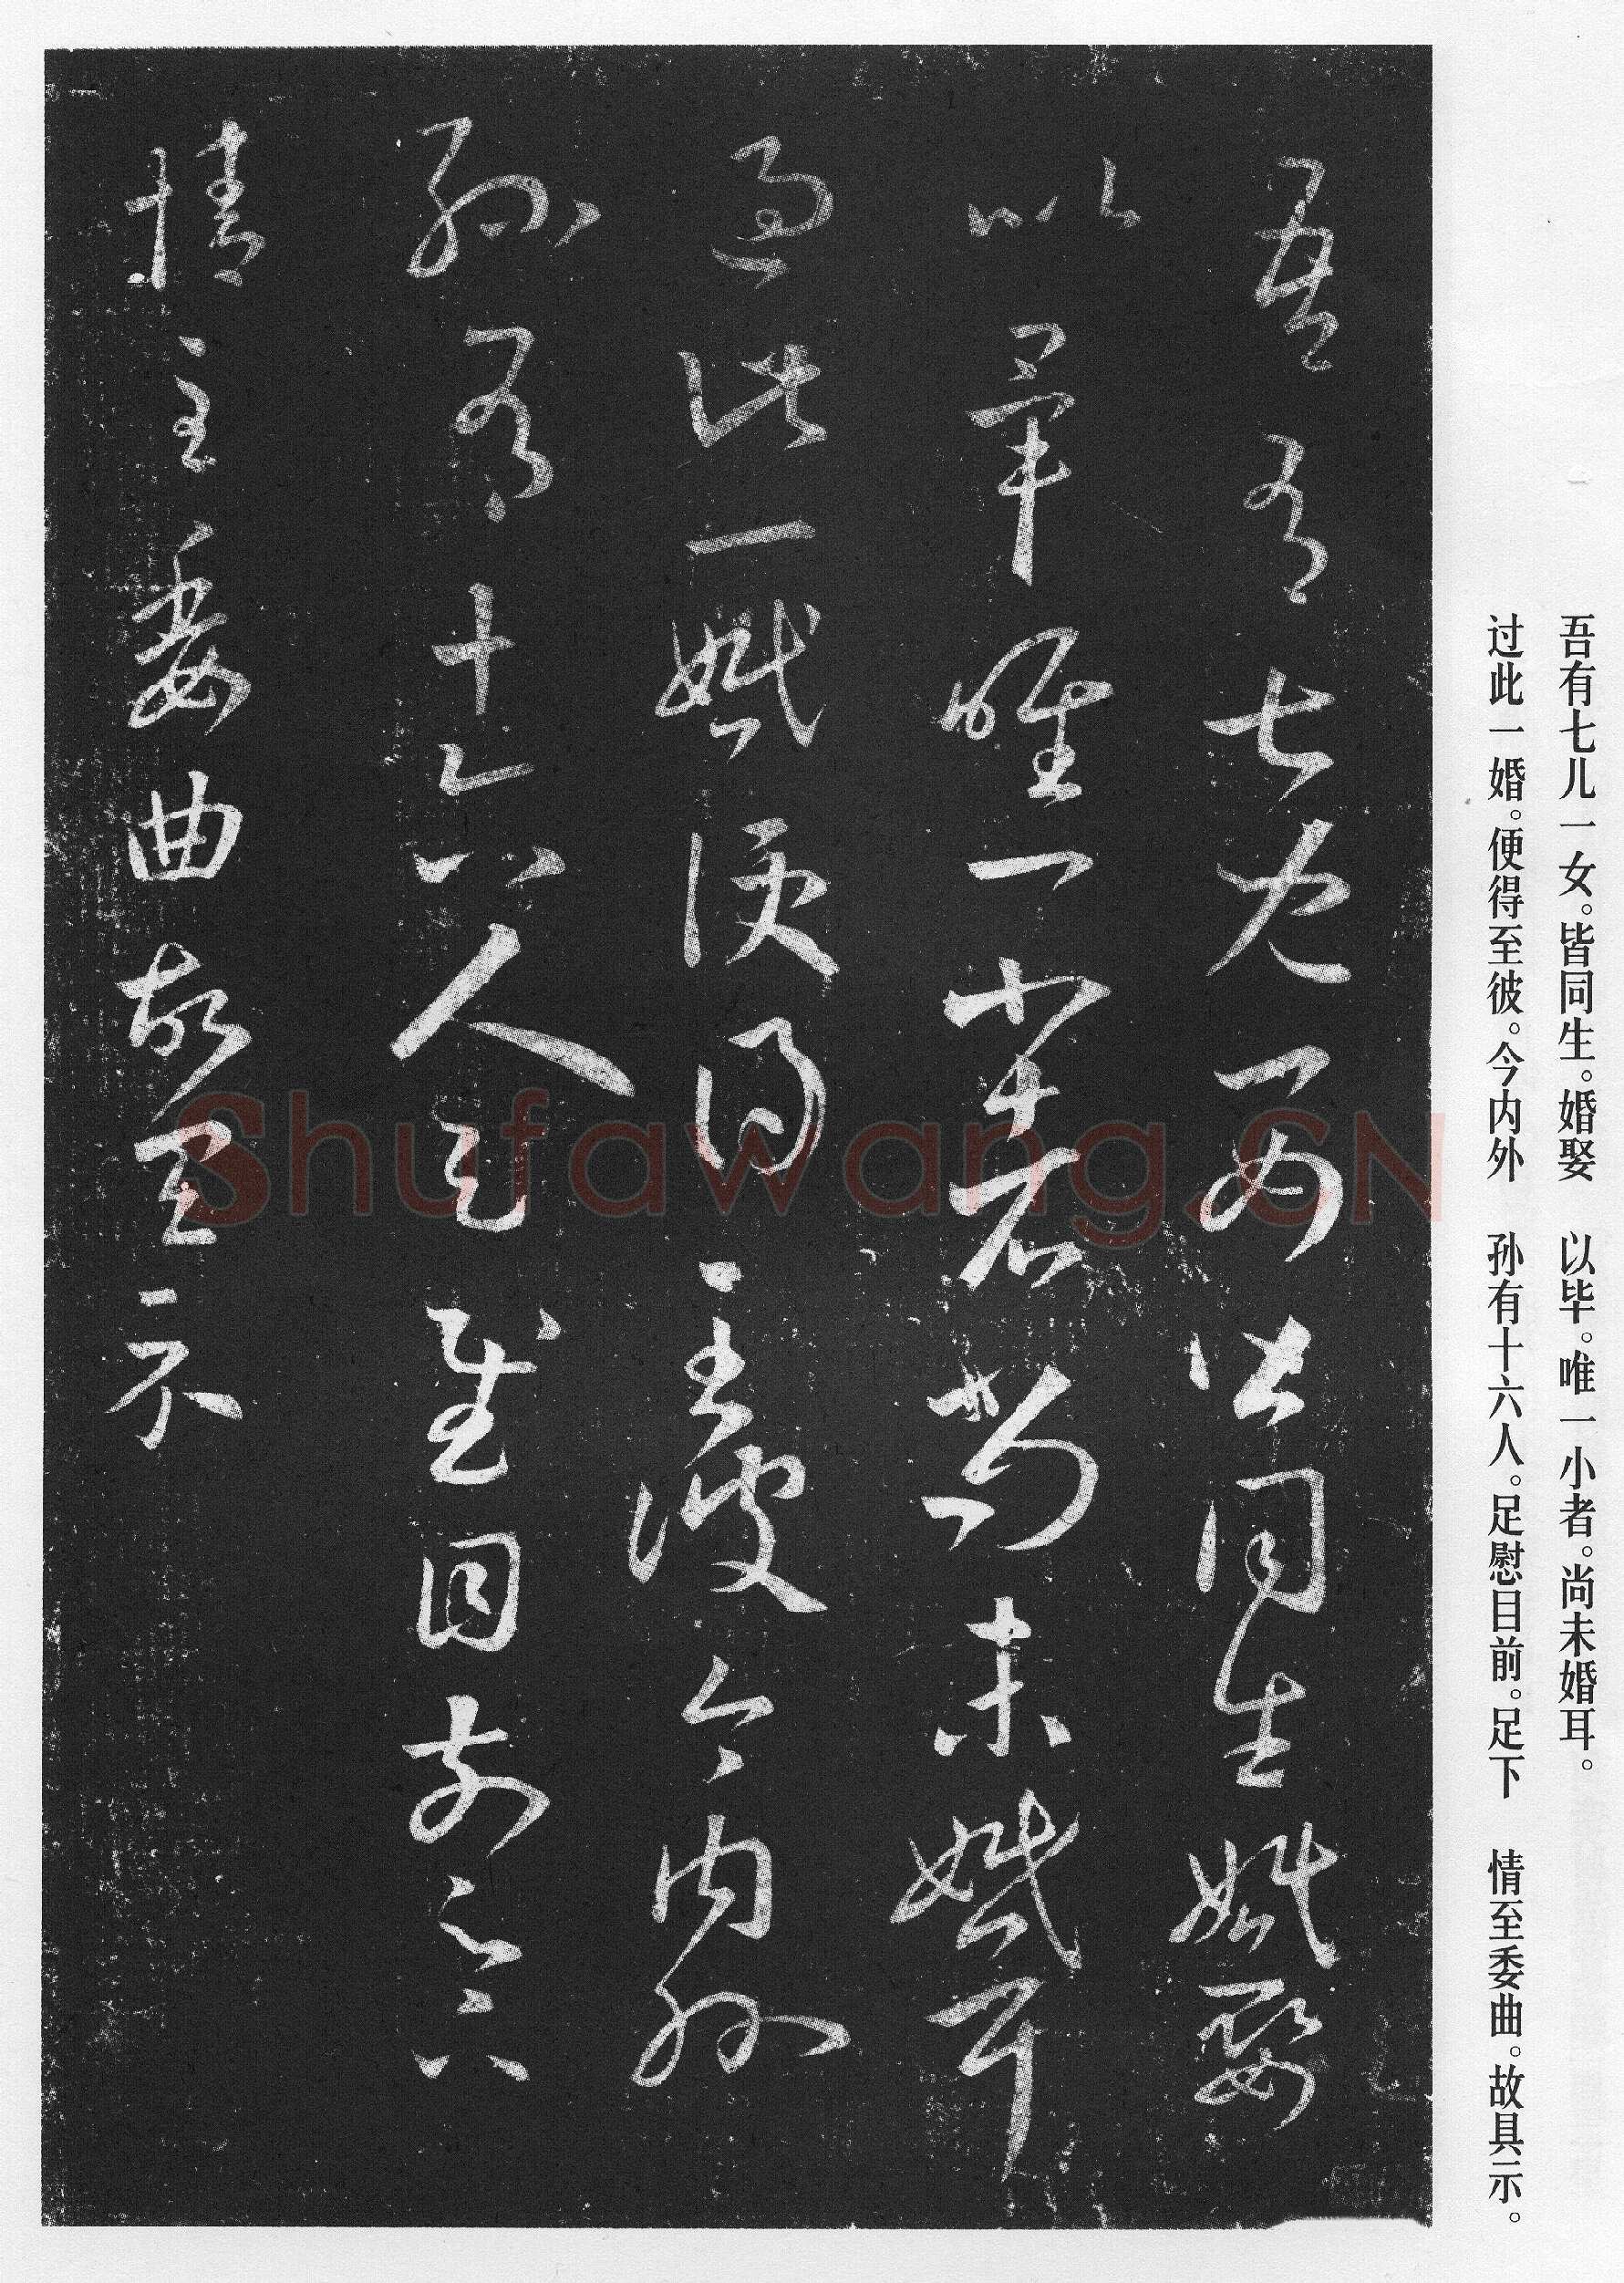 吾有七儿一女。皆同生。婚娶　以毕。唯一小者。尚未婚耳。
过此一婚。便得至彼。今内外　孙有十六人。足慰目前。足下　情至委曲。故具示。
吾有七儿一女皆同生婚娶
以毕唯一小者尚未婚耳
过此一婚便得至彼今内外
孙有十六人足慰目前足下
情至委曲故具示
Shufawang.CN